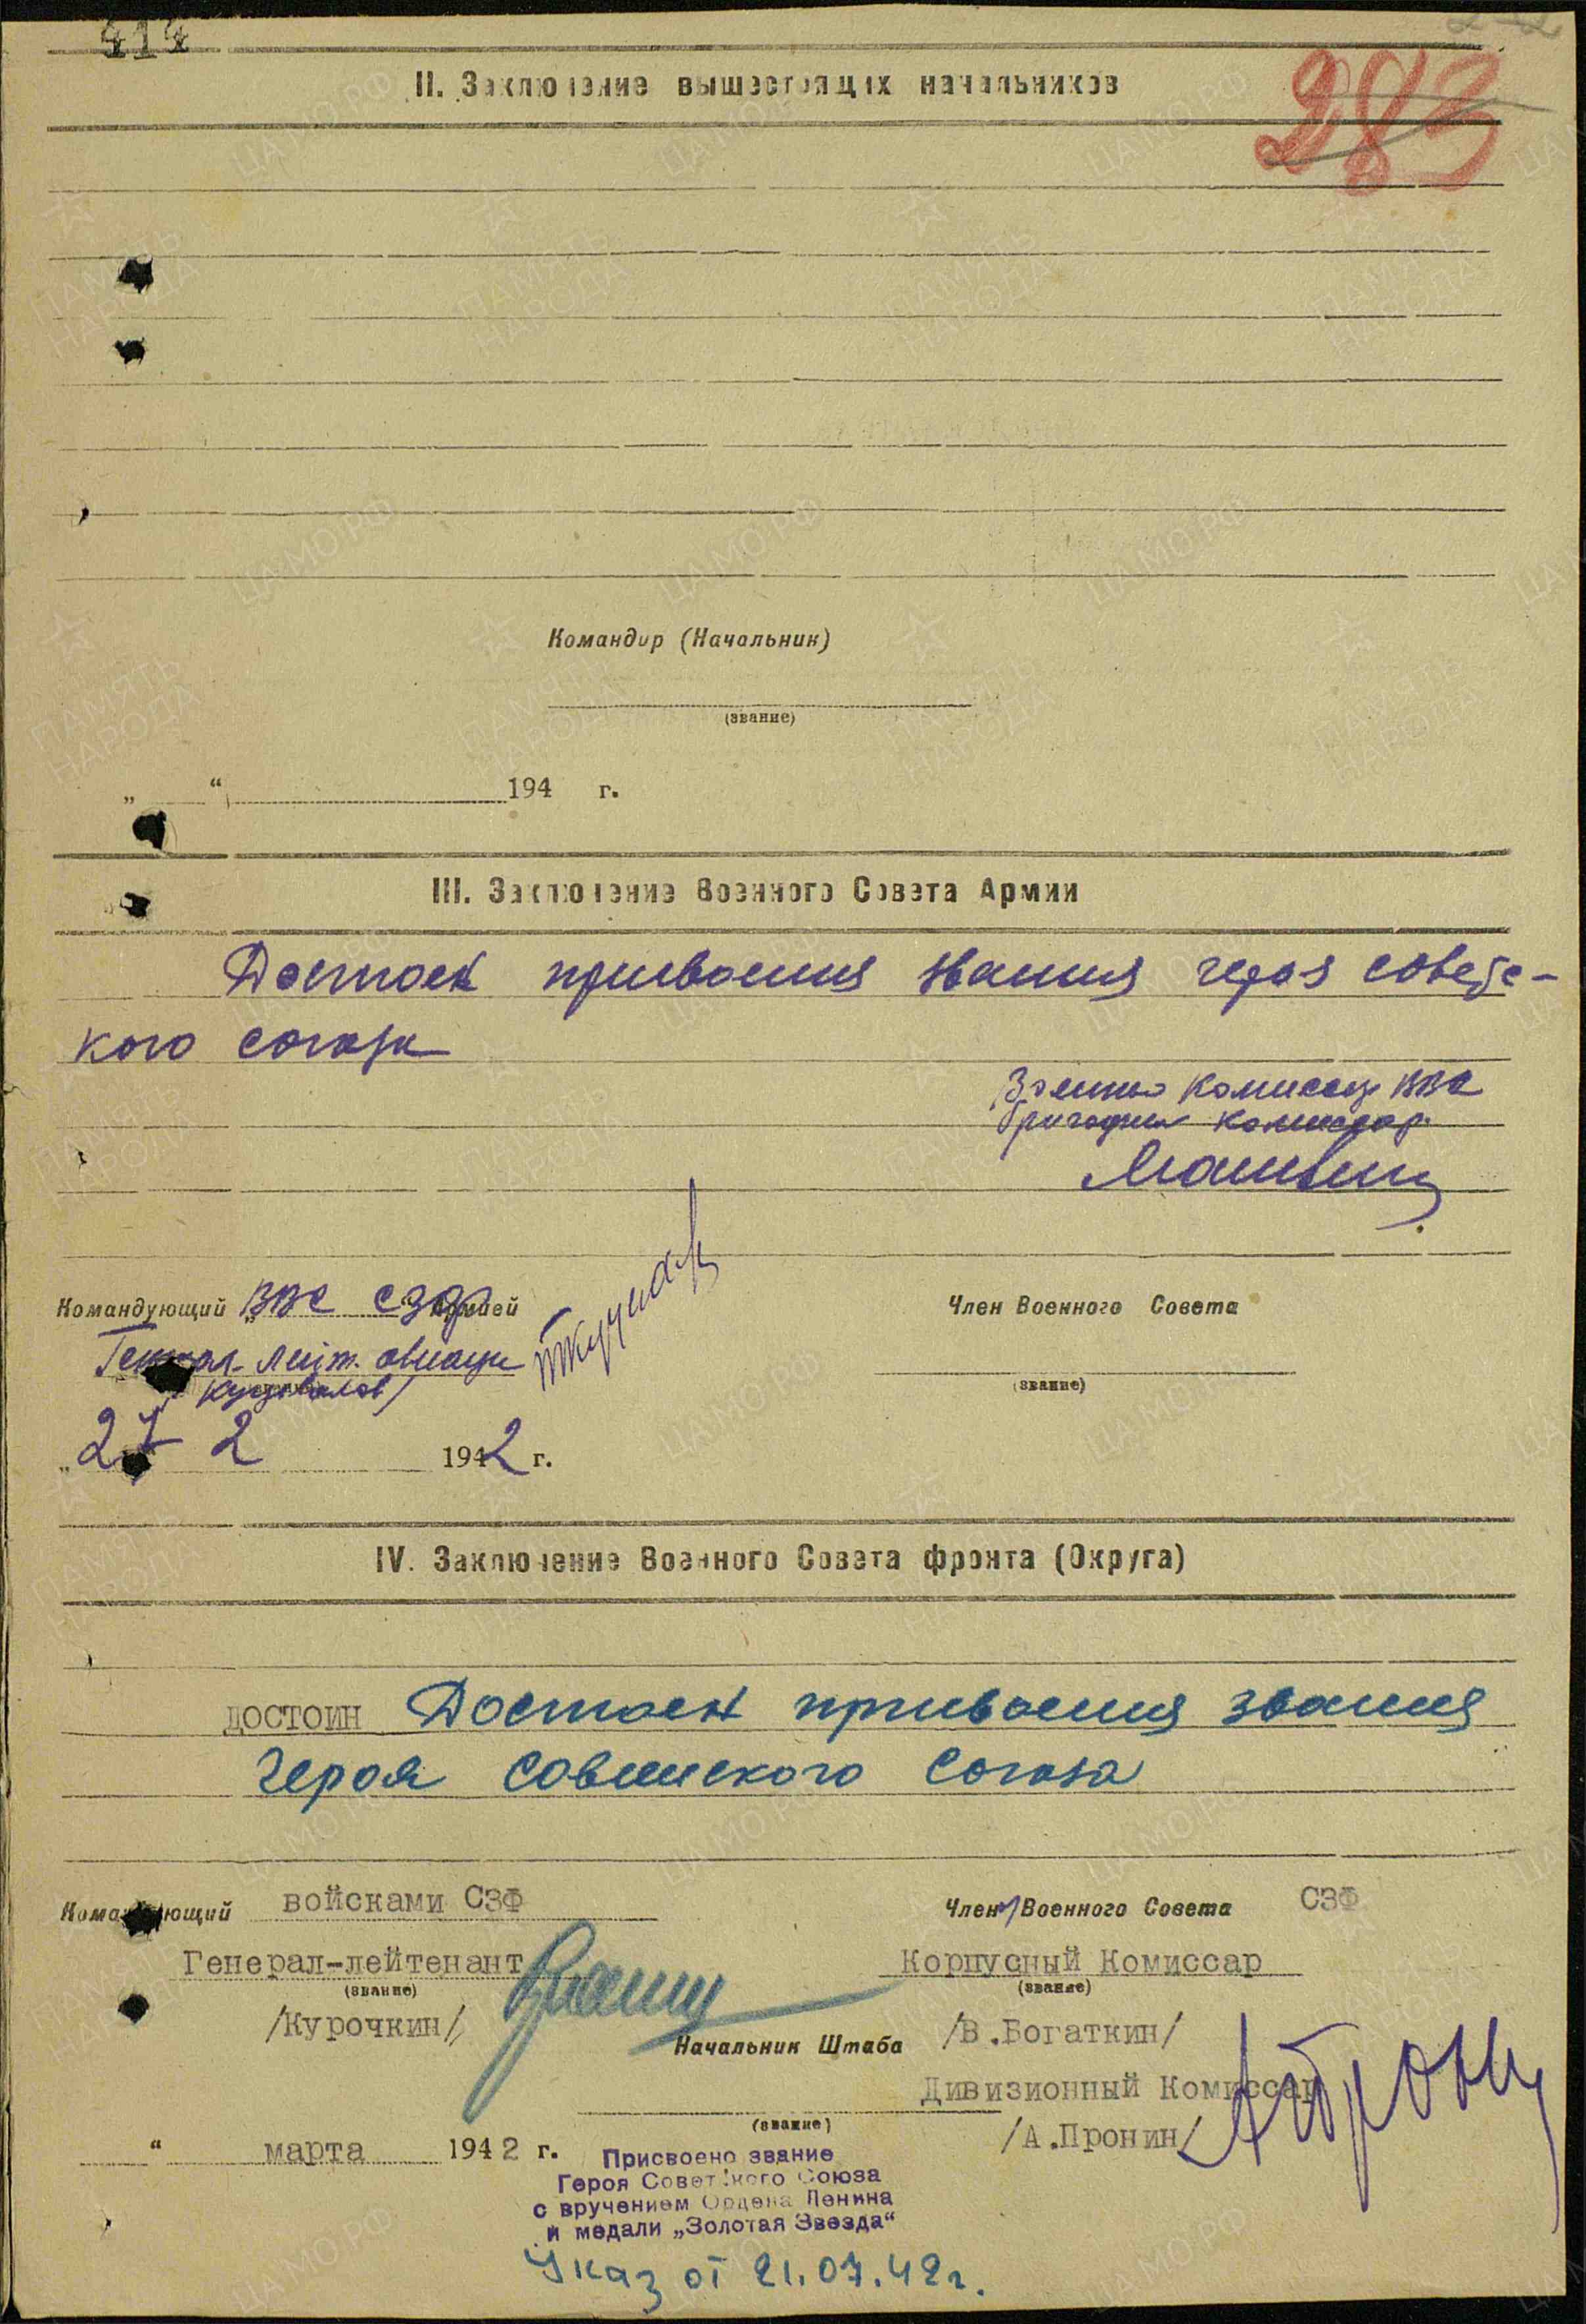 414
283
II. Заключение вышестоящих начальников
Командир (Начальник)
(звание)
„ “ 194 г.
III. Заключение Военного Совета Армии
Достоен присвоения звания героя советс-
кого союза
Военный комиссар ВВС
бригадный комиссар
Командующий ВВС СЗФ Армией
Генерал-лейт. авиации
Член Военного Совета
(звание)
„27 2 1942 г.
IV. Заключение Военного Совета фронта (Округа)
достоин Достоен присвоения звания
героя советского союза
Командующий войсками СЗФ
Член Военного Совета СЗФ
Генерал-лейтенант
Корпусный Комиссар
(звание)
(звание)
/Курочкин/
Начальник Штаба
/В.Богаткин/
Дивизионный Комиссар
(звание)
/А.Пронин/
“ марта 1942 г.
Присвоено звание
Героя Советского Союза
с вручением Ордена Ленина
и медали „Золотая Звезда“
Указ от 21.07.42г.
ПАМЯТЬ НАРОДА
ЦАМО.РФ